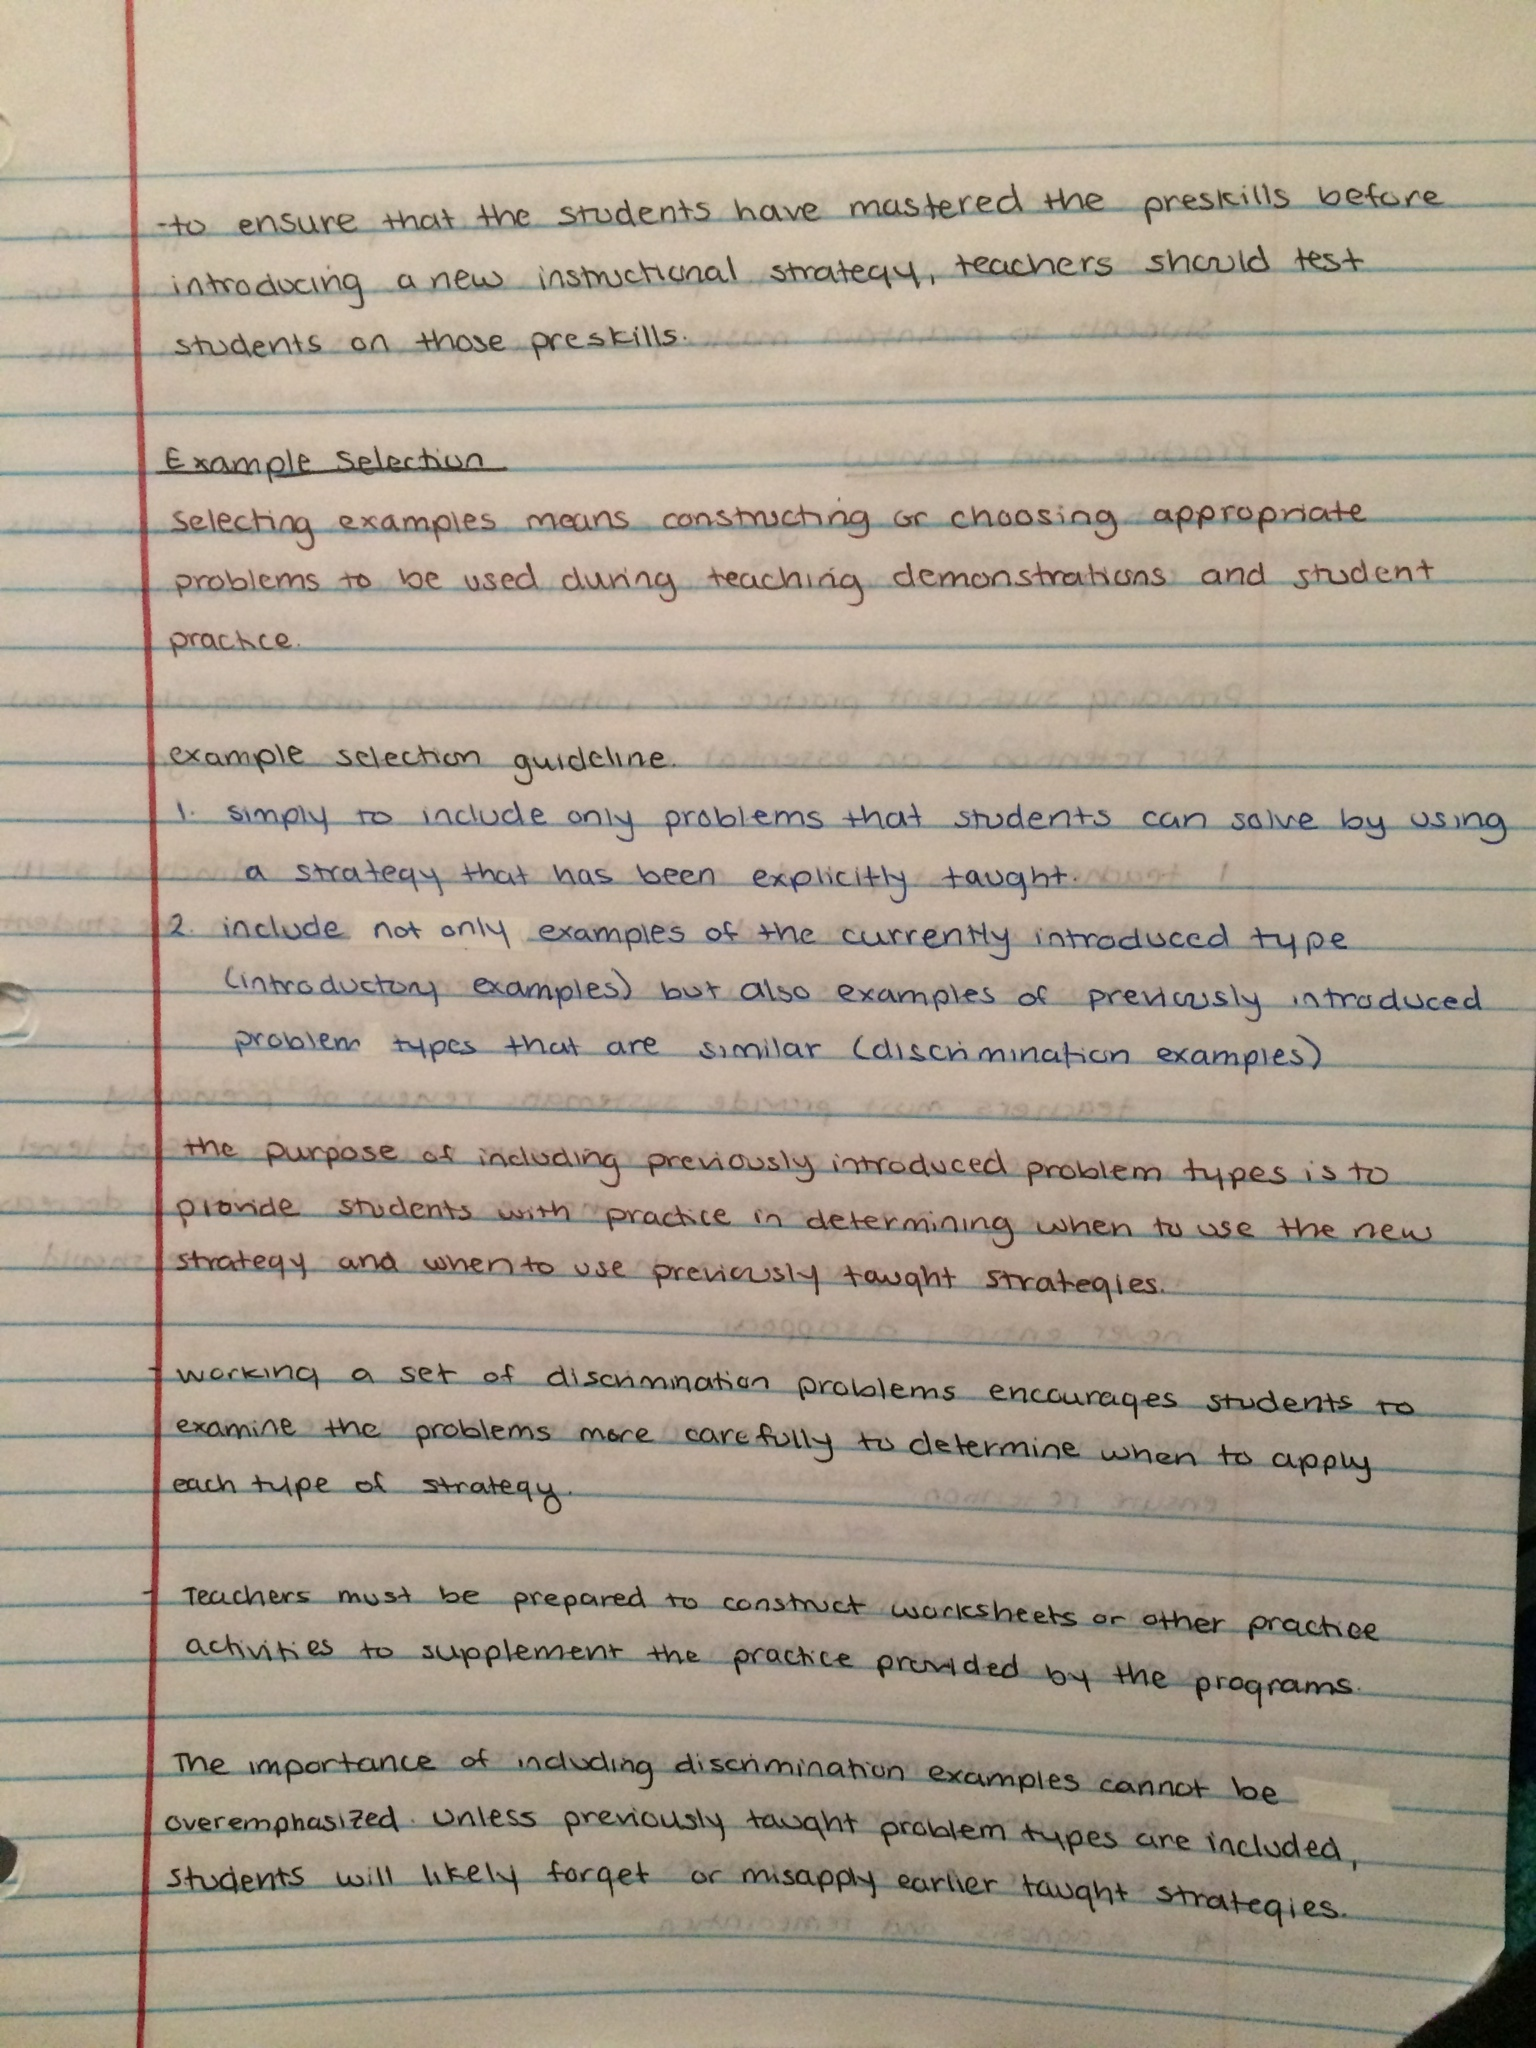 -to ensure that the students have mastered the preskills before
introducing a new instructional strategy, teachers should test
students on those preskills.
Example Selection
Selecting examples means constructing or choosing appropriate
problems to be used during teaching demonstrations and student
practice.
example selection guideline.
1. simply to include only problems that students can solve by using
a strategy that has been explicitly taught.
2. include not only examples of the currently introduced type
(introductory examples) but also examples of previously introduced
problem types that are similar (discrimination examples)
the purpose of including previously introduced problem types is to
provide students with practice in determining when to use the new
strategy and when to use previously taught strategies.
- working a set of discrimination problems encourages students to
examine the problems more carefully to determine when to apply
each type of strategy.
- Teachers must be prepared to construct worksheets or other practice
activities to supplement the practice provided by the programs.
The importance of including discrimination examples cannot be
overemphasized. Unless previously taught problem types are included,
students will likely forget or misapply earlier taught strategies.